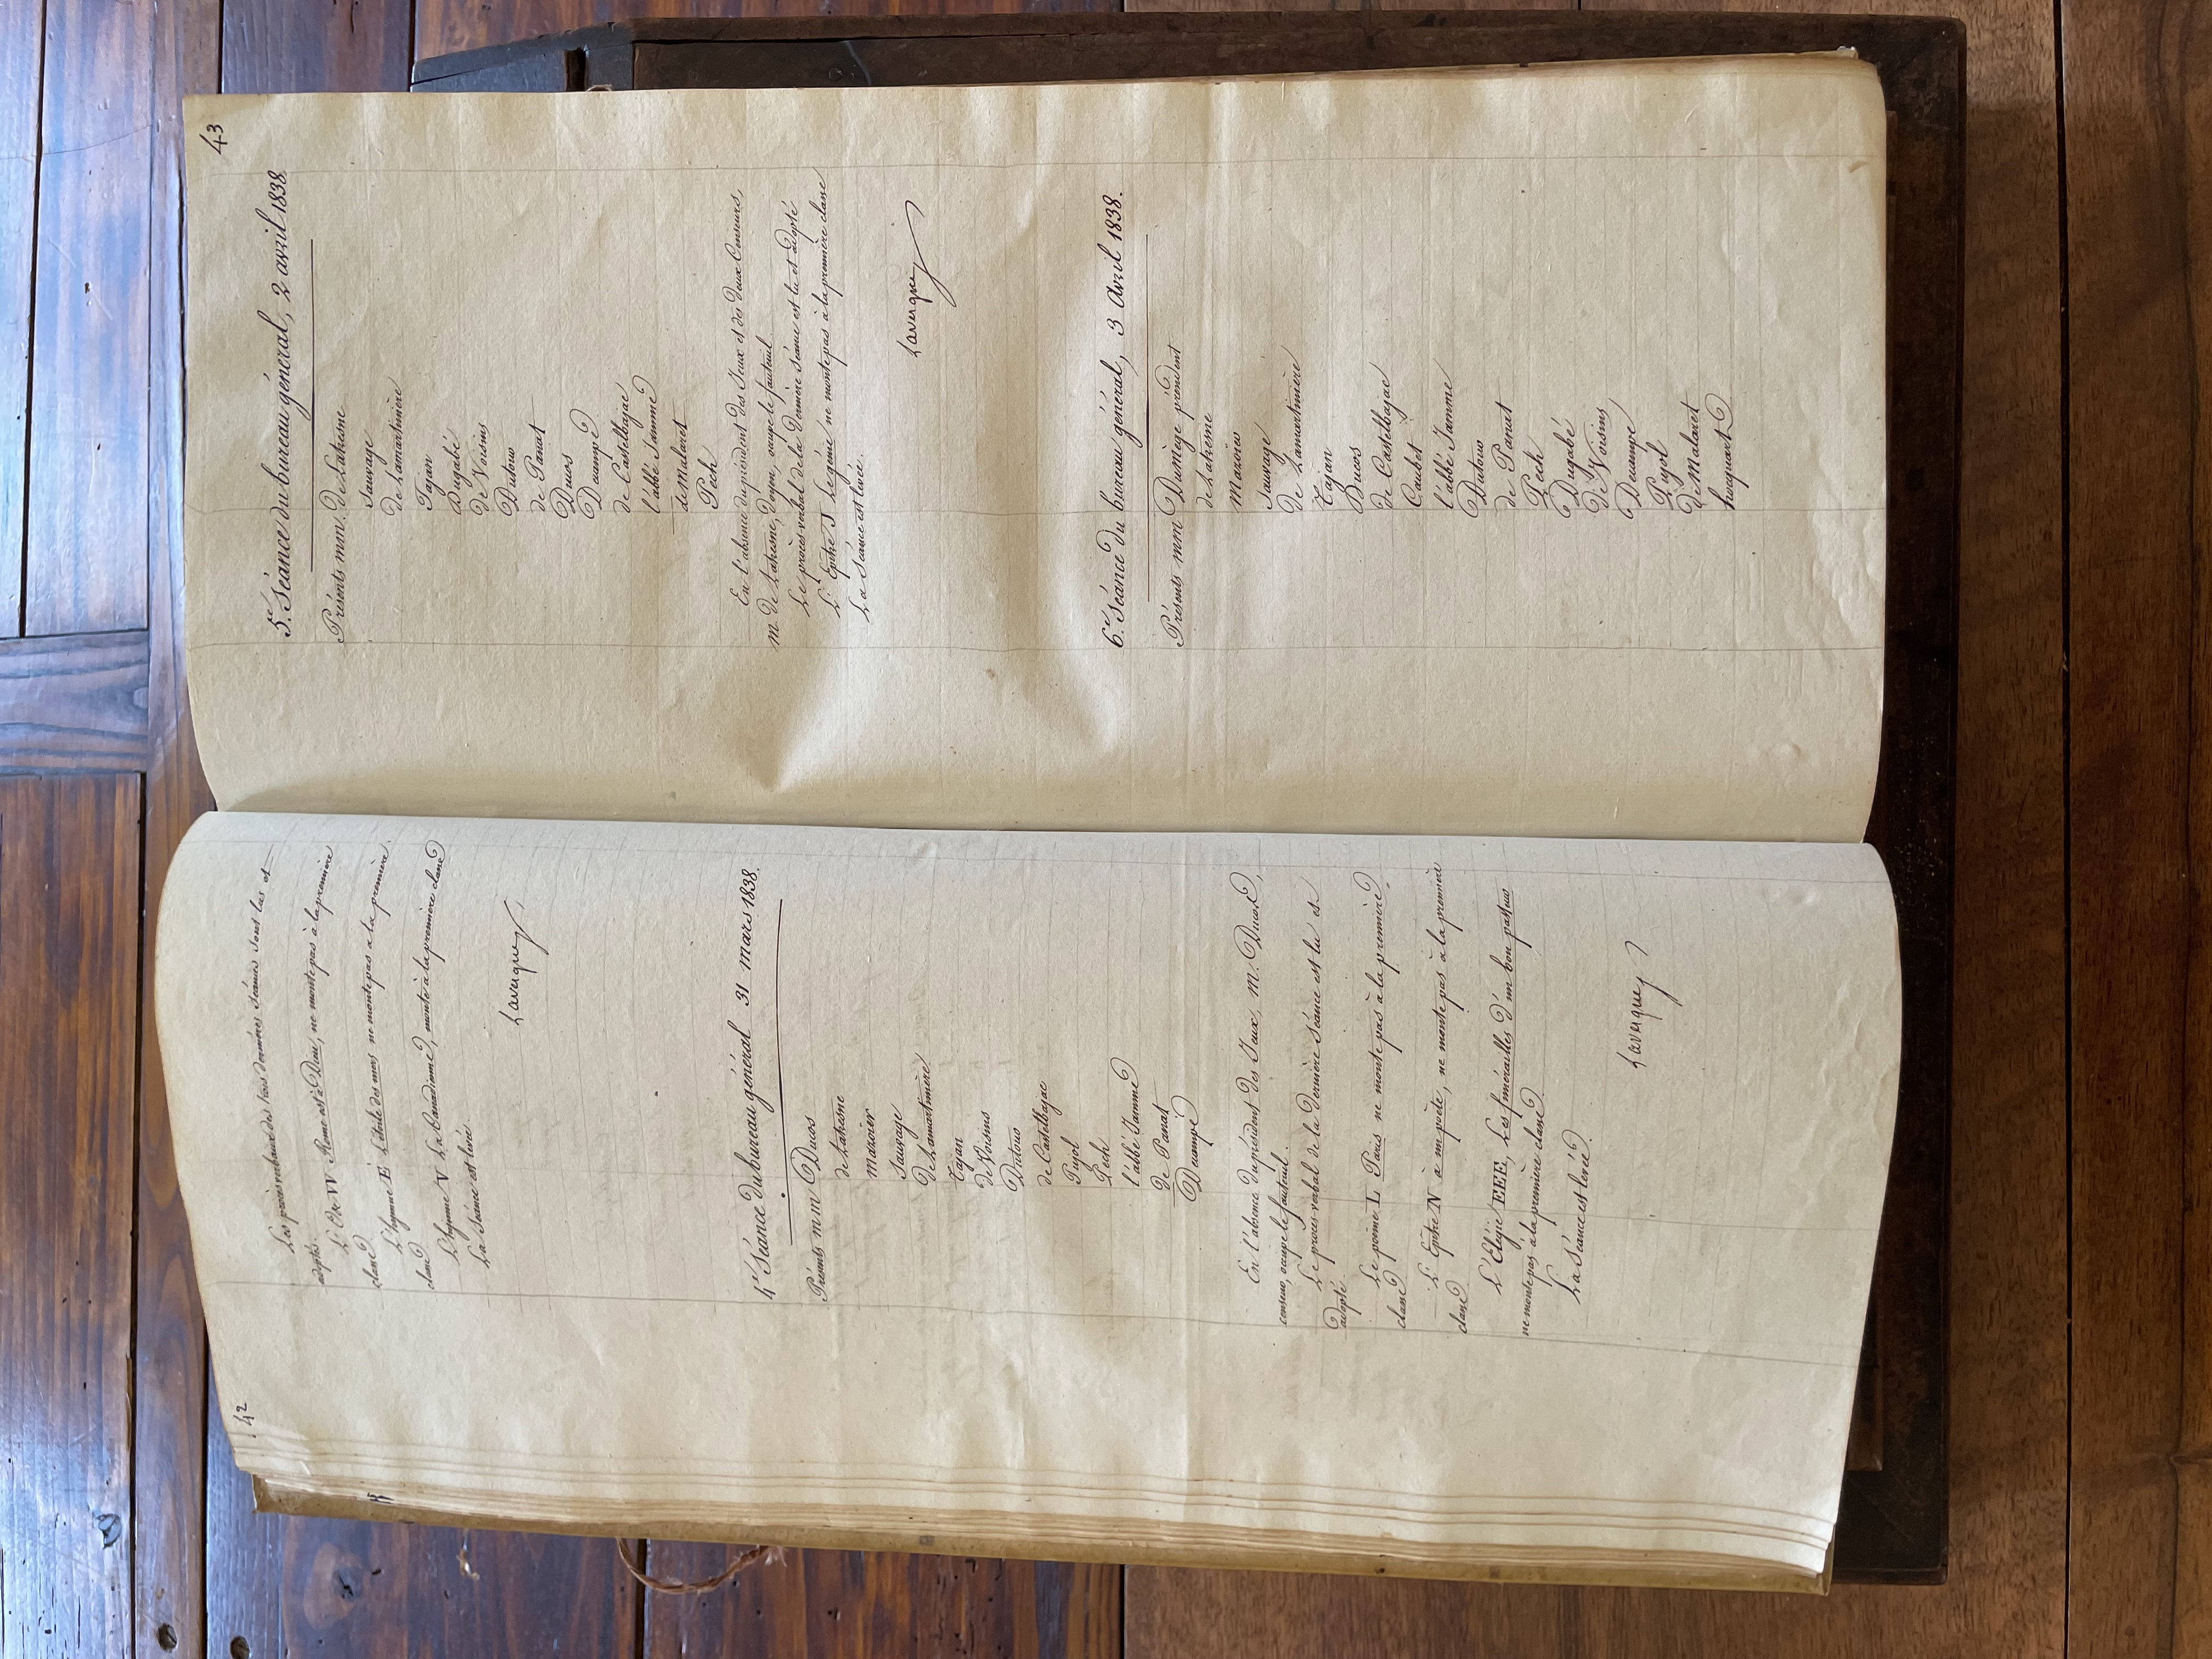 42
Les procès verbaux des trois dernières séances sont lus et
adoptés.
L'Ode VV Rome est à Dieu, ne monte pas à la première
classe
L'hymne E L'étoile des mers ne monte pas à la première
classe
L'hymne V La Canadienne, monte à la première classe
La séance est levée.
Lavergne
4e Séance du bureau général 31 mars 1838.
Présents mm Ducos
de Lahesne
mazoier
Sauvage
de Lamartinière
Tajan
de Voisins
Dutour
de Castelbajac
Pujol
Pech
l'abbé Jamme
de Panat
Decampe
En l'absence du président des Jeux, m. Ducos,
censeur, occupe le fauteuil.
Le procès verbal de la dernière séance est lu et
adopté.
Le poème L Paris ne monte pas à la première
classe
L'Epitre N à m poète, ne monte pas à la première
classe
L'Elégie EEE, Les funérailles d'un bon pasteur
ne monte pas à la première classe.
La Séance est levée.
Lavergne
43
5e Séance du bureau général, 2 avril 1838
Présents mm. de Lahesne
Sauvage
de Lamartinière
Tajan
Dugabé
de Voisins
Dutour
de Panat
Ducos
Decampe
de Castelbajac
l'abbé Jamme
de Malaret
Pech
En l'absence du président des Jeux et des deux Censeurs,
m. de Lahesne, doyen, occupe le fauteuil.
Le procès verbal de la dernière séance est lu et adopté
L'Epitre S Le génie ne monte pas à la première classe
La Séance est levée.
Lavergne
6e Séance du bureau général, 3 Avril 1838.
Présents mm Dumège président
de Lahesne
Mazoier
Sauvage
de Lamartinière
Tajan
Ducos
de Castelbajac
Caubet
l'abbé Jamme
Dutour
de Panat
Pech
Dugabé
de Voisins
Decampe
Pujol
de Malaret
hocquart